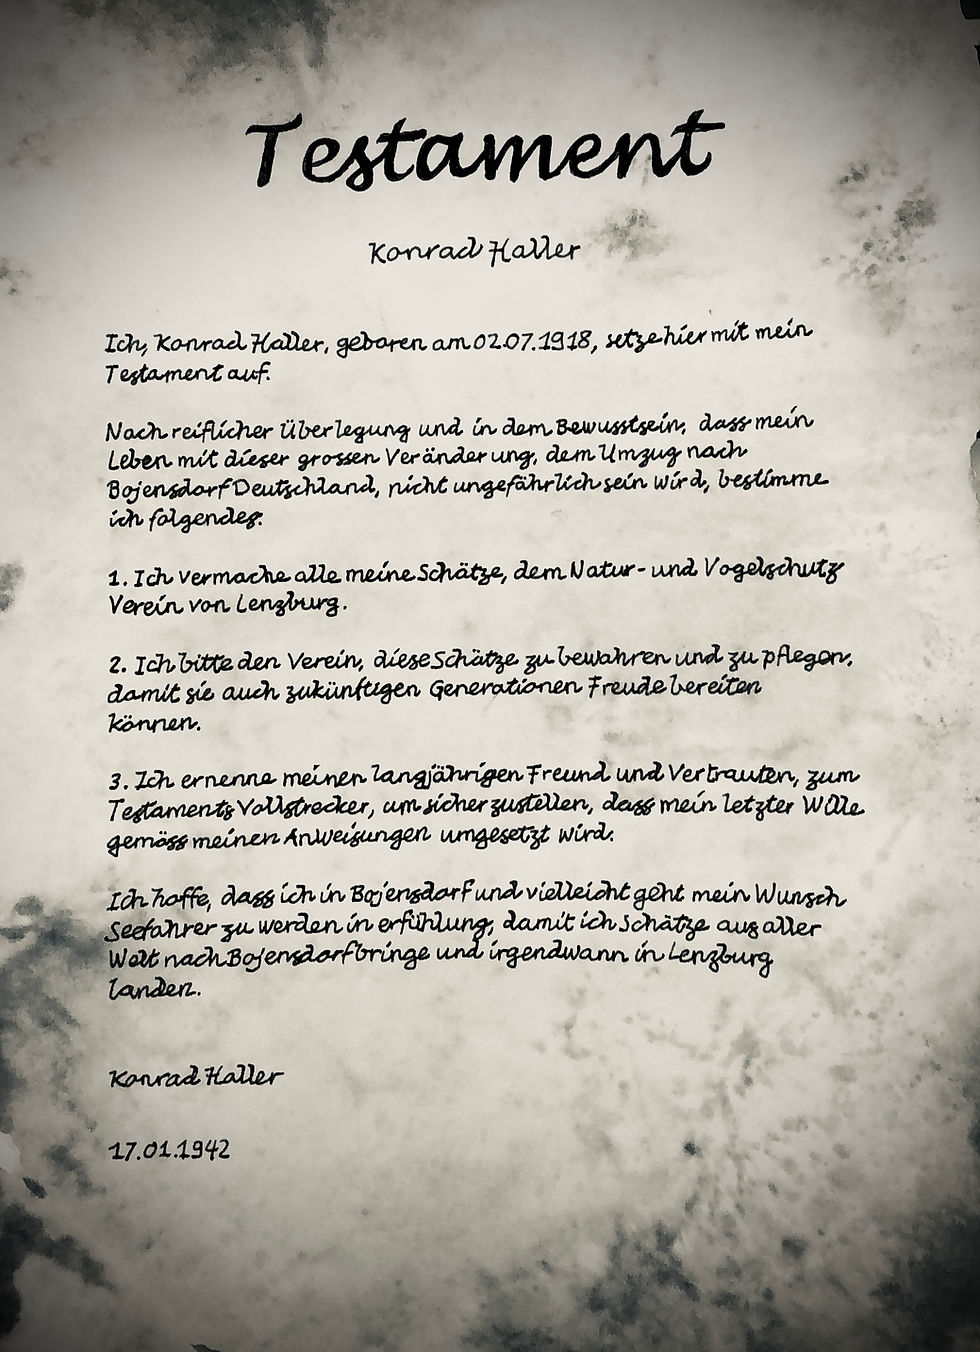 Testament
Konrad Haller
Ich, Konrad Haller, geboren am 02.07.1918, setze hier mit mein
Testament auf.
Nach reiflicher Überlegung und in dem Bewusstsein, dass mein
Leben mit dieser grossen Veränderung, dem Umzug nach
Bojensdorf Deutschland, nicht ungefährlich sein wird, bestimme
ich folgendes:
1. Ich vermache alle meine Schätze, dem Natur- und Vogelschutz
Verein von Lenzburg.
2. Ich bitte den Verein, diese Schätze zu bewahren und zu pflegen,
damit sie auch zukünftigen Generationen Freude bereiten
können.
3. Ich ernenne meinen langjährigen Freund und Vertrauten, zum
Testaments Vollstrecker, um sicherzustellen, dass mein letzter Wille
gemäss meinen Anweisungen umgesetzt wird.
Ich hoffe, dass ich in Bojensdorf und vielleicht geht mein Wunsch
Seefahrer zu werden in erfühlung, damit ich Schätze aus aller
Welt nach Bojensdorf bringe und irgendwann in Lenzburg
landen.
Konrad Haller
17.01.1942